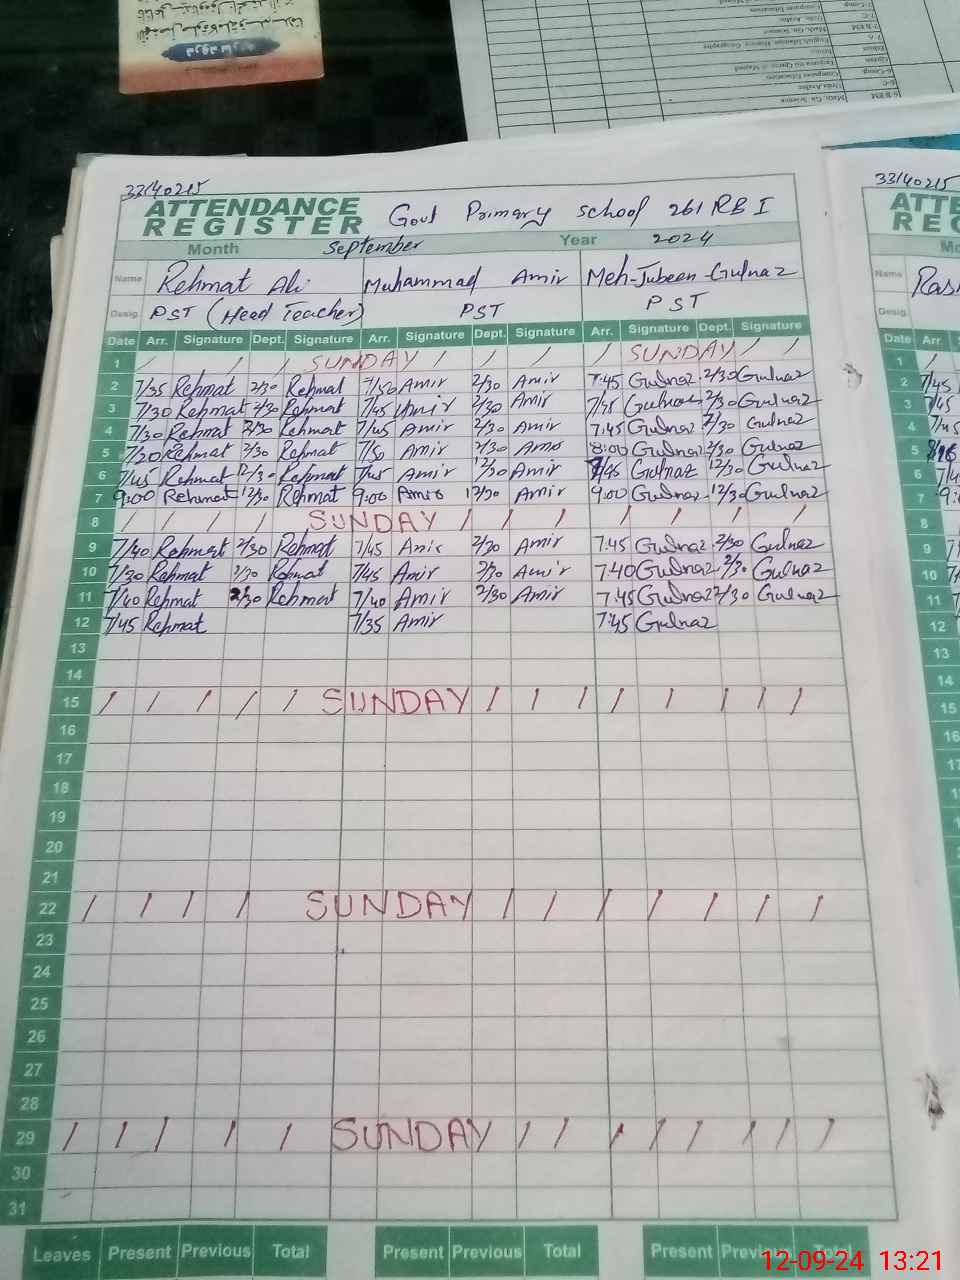 33140215
ATTENDANCE
REGISTER
Govt Primary school 261 RB I
Month September Year 2024
Name Rehmat Ali Muhammad Amir Meh-Jubeen Gulnaz
Desig. PST (Head Teacher) PST PST
Date Arr. Signature Dept. Signature Arr. Signature Dept. Signature Arr. Signature Dept. Signature
1 / / / / SUNDAY / / / / SUNDAY / /
2 7/35 Rehmat 2/30 Rehmat 7/50 Amir 2/30 Amir 7:45 Gulnaz 2/30 Gulnaz
3 7/30 Rehmat 2/30 Rehmat 7/45 Amir 2/30 Amir 7/45 Gulnaz 2/30 Gulnaz
4 7/30 Rehmat 2/30 Rehmat 7/45 Amir 2/30 Amir 7:45 Gulnaz 2/30 Gulnaz
5 7/20 Rehmat 2/30 Rehmat 7/50 Amir 2/30 Amir 8:00 Gulnaz 2/30 Gulnaz
6 7/45 Rehmat 12/30 Rehmat 7/45 Amir 12/30 Amir 7/45 Gulnaz 12/30 Gulnaz
7 9:00 Rehmat 12/30 Rehmat 9:00 Amir 12/30 Amir 9:00 Gulnaz 12/30 Gulnaz
8 / / / / SUNDAY / / / / / / /
9 7/40 Rehmat 2/30 Rehmat 7/45 Amir 2/30 Amir 7:45 Gulnaz 2/30 Gulnaz
10 7/30 Rehmat 2/30 Rehmat 7/45 Amir 2/30 Amir 7:40 Gulnaz 2/30 Gulnaz
11 7/40 Rehmat 2/30 Rehmat 7/40 Amir 2/30 Amir 7:45 Gulnaz 2/30 Gulnaz
12 7/45 Rehmat 7/35 Amir 7:45 Gulnaz
13
14
15 / / / / / SUNDAY / / / / / / / /
16
17
18
19
20
21
22 / / / / SUNDAY / / / / / / /
23
24
25
26
27
28
29 / / / / / SUNDAY / / / / / / /
30
31
Leaves Present Previous Total Present Previous Total Present
33140215
ATT
REG
Name
Desig.
Date Arr.
1
2 7/45
3 7/45
4
5
6
7
8
9
10
11
12
13
14
15
16
12-09-24 13:21